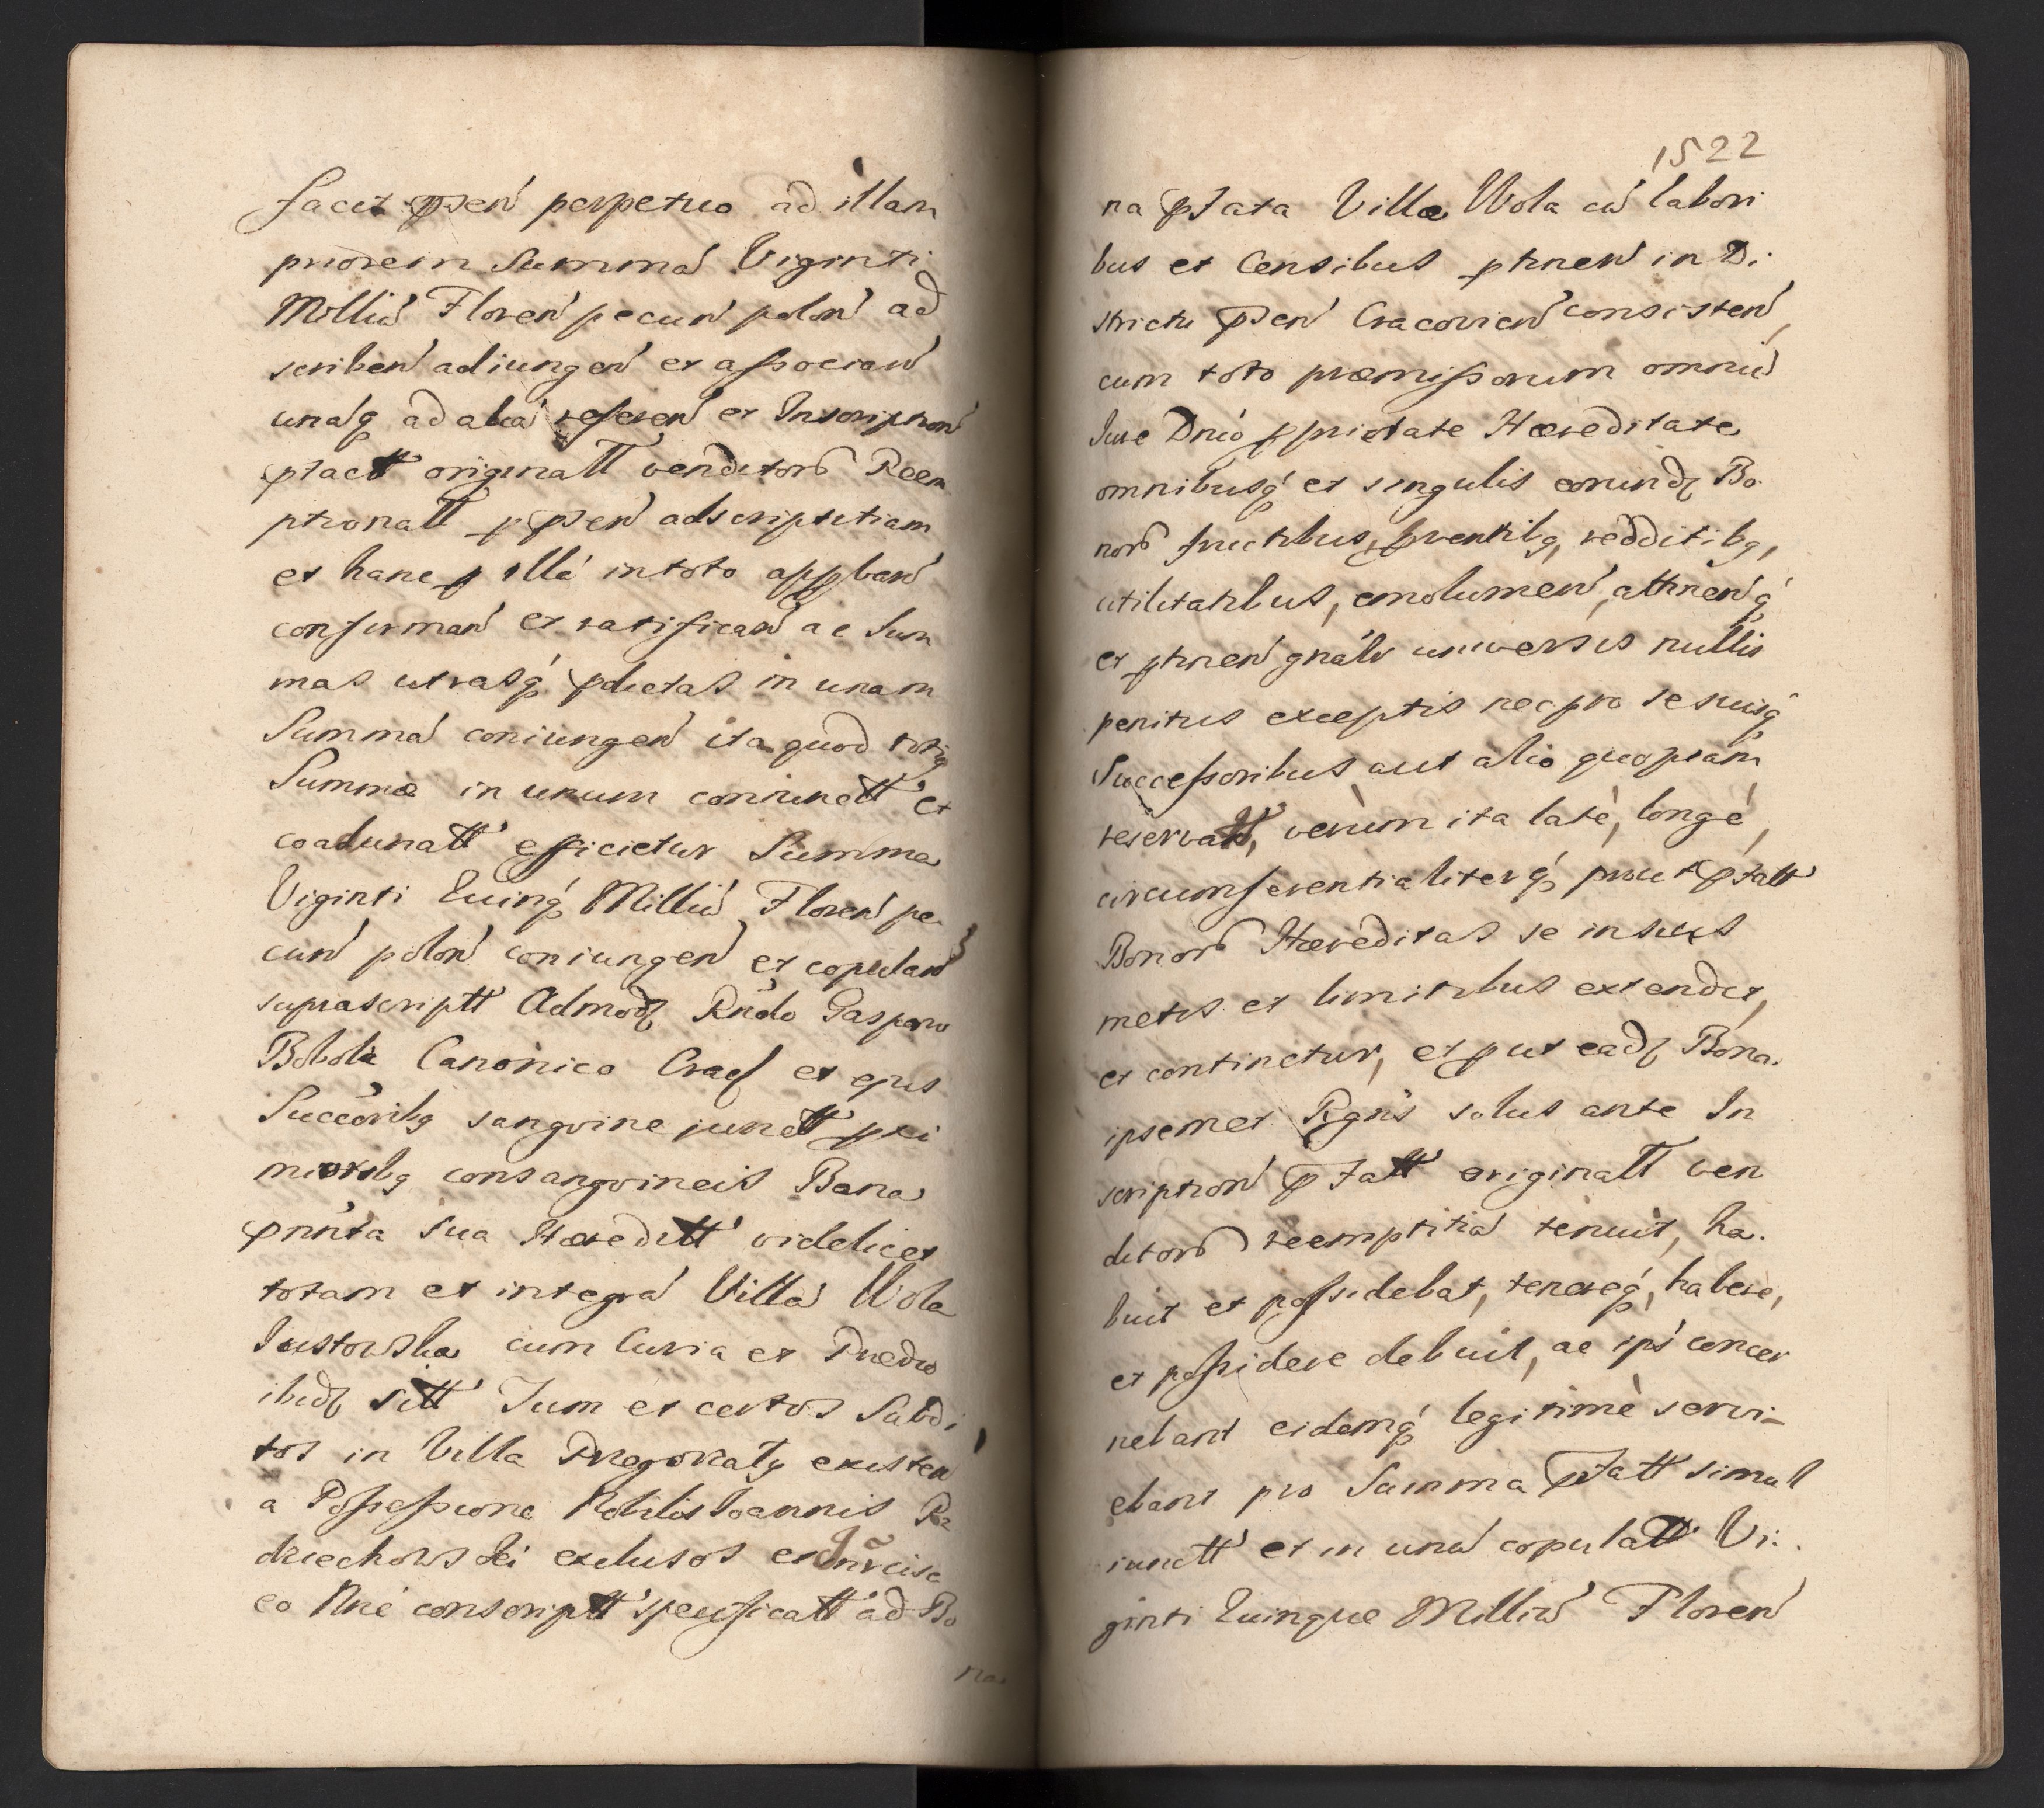 facit pnñ perpetuo ad illam
priorem Summá Viginti
Milliú Floreń pecuń poloń ad
scribeń adiungeń et associań
unáq ad aliá refereń et Inscriptioń
ptactt originatt venditorú Reem
ptionatt p pnń adscriptitiam
et hanc p illá in toto appbań
confirmań et ratificań ac Sum
mas utrasq́ pdictas in unam
Summá coniungeń ita quod totiq
Summæ in unum coniunctt et
coadunatt efficietur Summa
Viginti Quinq́ Milliú Floreń pe
cuń poloń coniungeń et copulań
suprascriptt Admodꝫ Rńdo Gasparo
Bobola Canonico Cracꝭ et ejus
Succóribq sangvine junctt pxi
mioribq consangvineis Bona
pńnta sua Hæreditt videlicet
totam et integrá Villá Wola
Justowska cum Curia et Prædio
ibidꝫ sitt Tum et certos Subdi
tos in Villa Przegorzaly existeń
a Possessione Nobilis Joannis Ra
dziechowski exclusos et Inr̃cise
eo Nné conscriptt specificatt ad Bo
na
1522
na ptata Villæ Wola cú labori
bus et Censibus ptineń in Di
strictu pnń Cracovień consisteń,
cum toto præmissorum omniú
Jure Dnió pprietate Hæreditate
omnibusq́ et singulis eorundꝫ Bo
norú fructibus, pventibq, redditibq,
utilitatibus, emolumeń, attineńq́
et ptineń gnálr universis nullis
penitus exceptis nec pro se suisq́
Successoribus aut alio quopiam
reservatt, verùm ita latè, longè,
circumferentialiterq́, prout ptatt
Bonorú Hæreditas se in suis
metis et limitibus extendit,
et continetur, et put eadꝫ Bona
ipsemet Rgńs solus ante In
scriptioń ptatt originatt ven
ditorú reemptitiá tenuit, ha
buit et possidebat, tenereq́, habere,
et possidere debuit, ac ipś concer
nebant eidemq́ legitimè servi-
ebant pro Summa ptatt simul
iunctt et in uná copulatt Vi
ginti Quinque Milliú Floreń